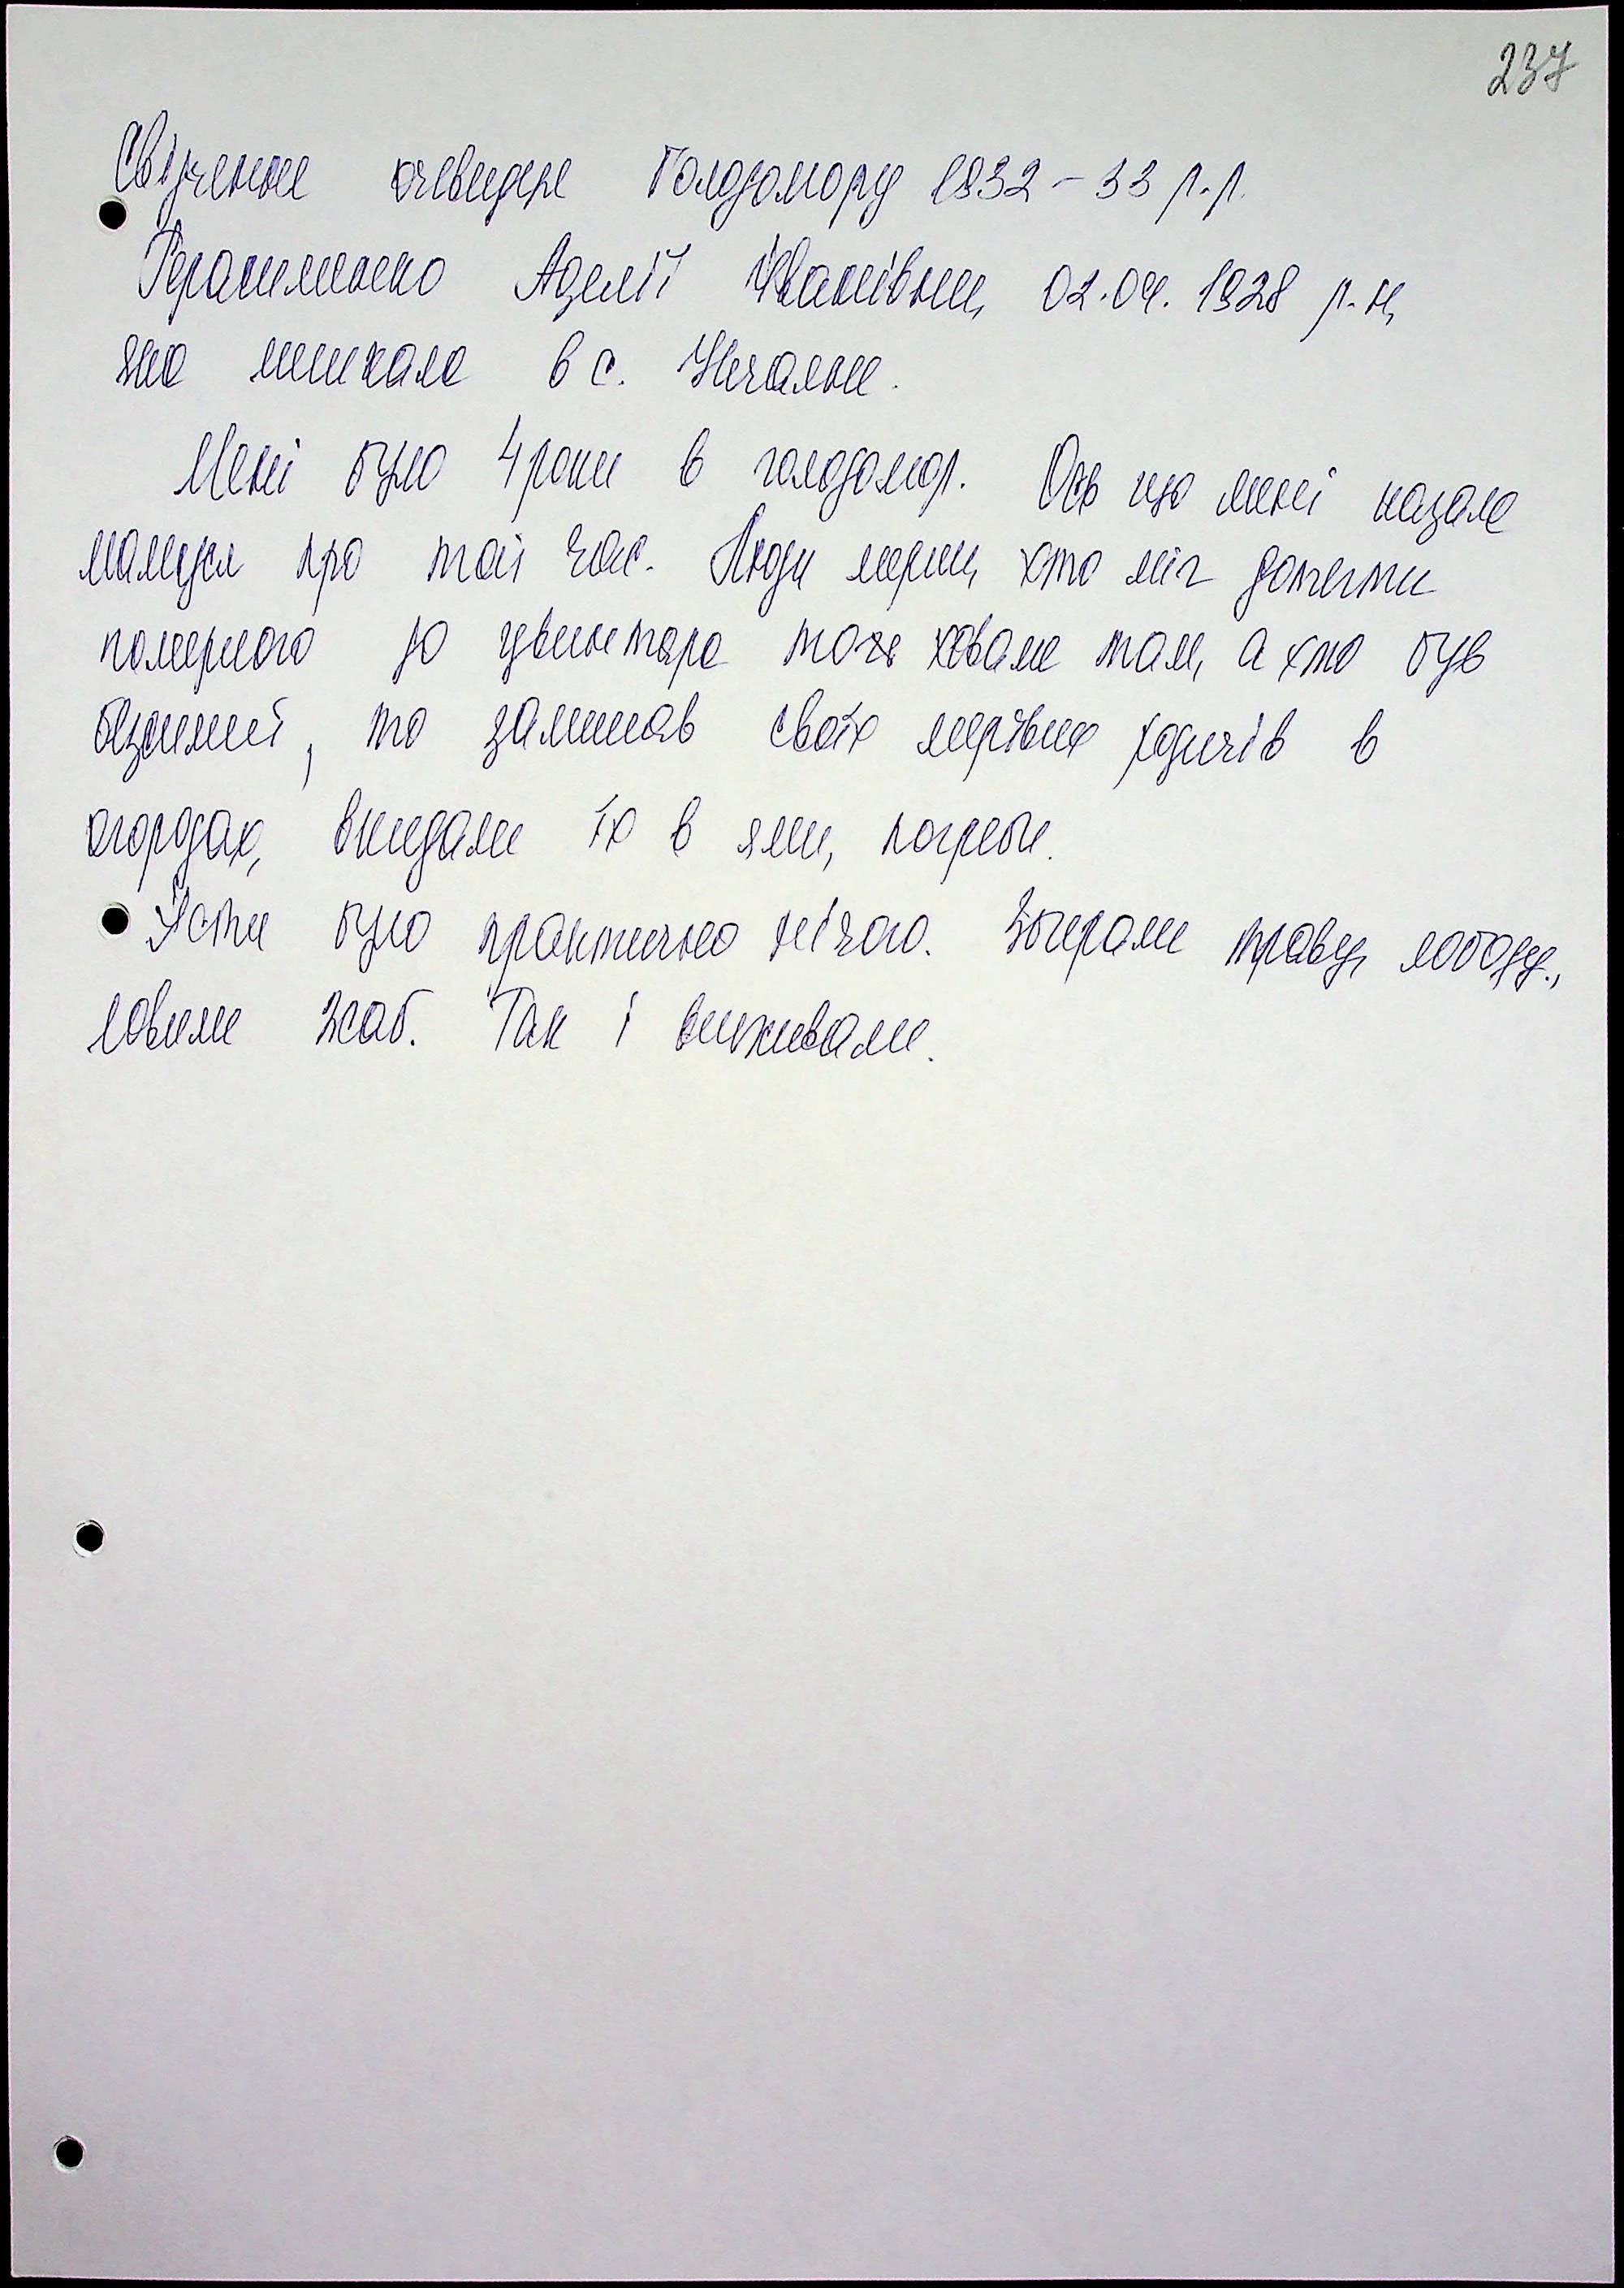 237
Свідчення очевидця Голодомору 1932-33 р.р.
Герасименко Аделії Іванівни, 02.04. 1928 р.н,
яка мешкала в с.
Мені було 4 роки в голодомор. Ось що мені казала
мамуся про той час. Люди мерли, хто міг дотягти
померлого до цвинтаря того ховали там, а хто був
безсилий, то залишав своїх мертвих родичів в
огородах, вкидали їх в ями, погреби.
Їсти було практично нічого. Збирали траву, лободу,
ловили жаб. Так і виживали.